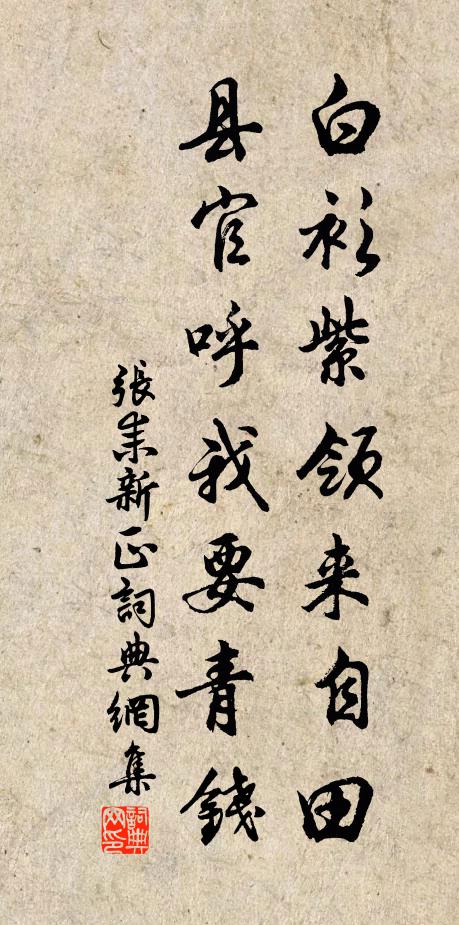 白衫紫领来自田
县官呼我要青钱
張耒新正詞典網集
詞典网印